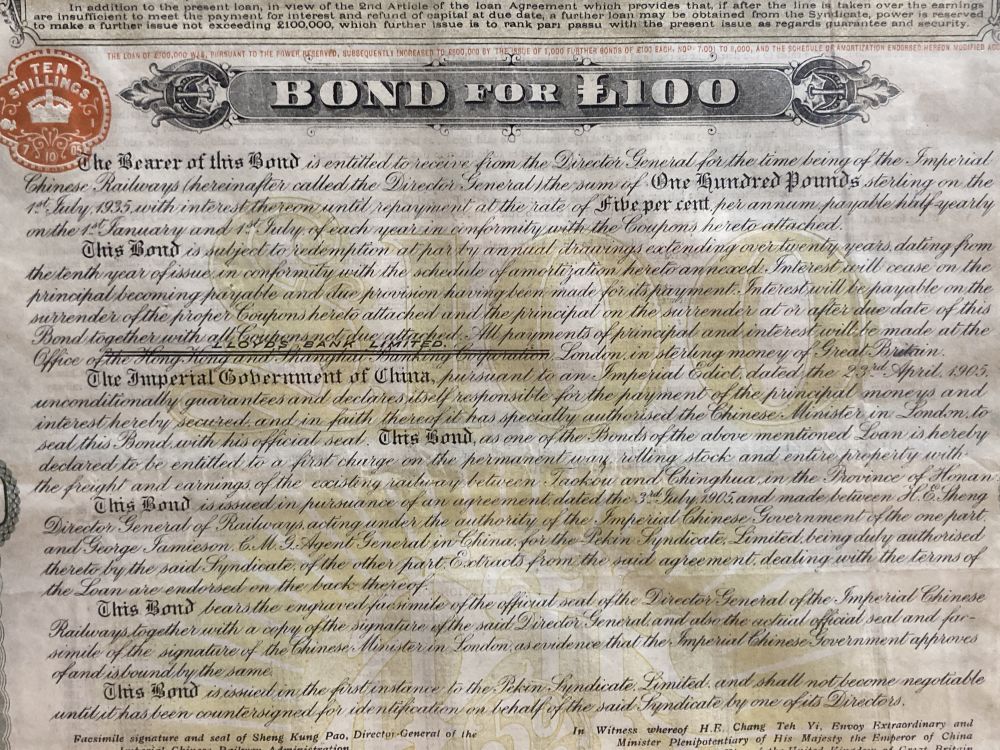 In addition to the present loan, in view of the 2nd Article of the loan Agreement which provides that, if after the line is taken over the earnings
are insufficient to meet the payment for interest and refund of capital at due date, a further loan may be obtained from the Syndicate, power is reserved
to make a further issue not exceeding £100,000, which further issue is to rank pari passu with the present issue as regards guarantee and security.
THE LOAN OF £700,000 WAS, PURSUANT TO THE POWER RESERVED, SUBSEQUENTLY INCREASED TO £800,000 BY THE ISSUE OF 1,000 FURTHER BONDS OF £100 EACH, NOS 7,001 TO 8,000, AND THE SCHEDULE OF AMORTIZATION ENDORSED HEREON MODIFIED
TEN
SHILLINGS
7 10 05
BOND FOR £100
The Bearer of this Bond is entitled to receive from the Director General for the time being of the Imperial
Chinese Railways (hereinafter called the Director General) the sum of One Hundred Pounds sterling on the
1st July, 1935, with interest thereon until repayment at the rate of Five per cent, per annum payable half yearly
on the 1st January and 1st July, of each year in conformity with the Coupons hereto attached.
This Bond is subject to redemption at par by annual drawings extending over twenty years, dating from
the tenth year of issue, in conformity with the schedule of amortization hereto annexed. Interest will cease on the
principal becoming payable and due provision having been made for its payment. Interest will be payable on the
surrender of the proper Coupons hereto attached and the principal on the surrender at or after due date of this
Bond together with all Coupons not due attached. All payments of principal and interest will be made at the
LLOYDS BANK LIMITED.
Office of the Hong Kong and Shanghai Banking Corporation, London, in sterling money of Great Britain.
The Imperial Government of China, pursuant to an Imperial Edict, dated the 23rd April, 1905,
unconditionally guarantees and declares itself responsible for the payment of the principal moneys and
interest hereby secured, and in faith thereof it has specially authorised the Chinese Minister in London, to
seal this Bond with his official seal. This Bond, as one of the Bonds of the above mentioned Loan is hereby
declared to be entitled to a first charge on the permanent way, rolling stock and entire property with
the freight and earnings, of the existing railway between Taokou and Chinghua, in the Province of Honan.
This Bond is issued in pursuance of an agreement, dated the 3rd July 1905, and made between H. E. Sheng
Director General of Railways, acting under the authority of the Imperial Chinese Government of the one part,
and George Jamieson, C.M.G. Agent General in China, for the Pekin Syndicate, Limited, being duly authorised
thereto by the said Syndicate, of the other part. Extracts from the said agreement, dealing with the terms of
the Loan are endorsed on the back thereof.
This Bond bears the engraved facsimile of the official seal of the Director General of the Imperial Chinese
Railways, together with a copy of the signature of the said Director General, and also the actual official seal and fac-
simile of the signature of the Chinese Minister in London, as evidence that the Imperial Chinese Government approves
of and is bound by the same.
This Bond is issued in the first instance to the Pekin Syndicate, Limited, and shall not become negotiable
until it has been countersigned for identification on behalf of the said Syndicate by one of its Directors.
Facsimile signature and seal of Sheng Kung Pao, Director-General of the
Imperial Chinese Railway Administration
In Witness whereof H.E. Chang Teh Yi, Envoy Extraordinary and
Minister Plenipotentiary of His Majesty the Emperor of China